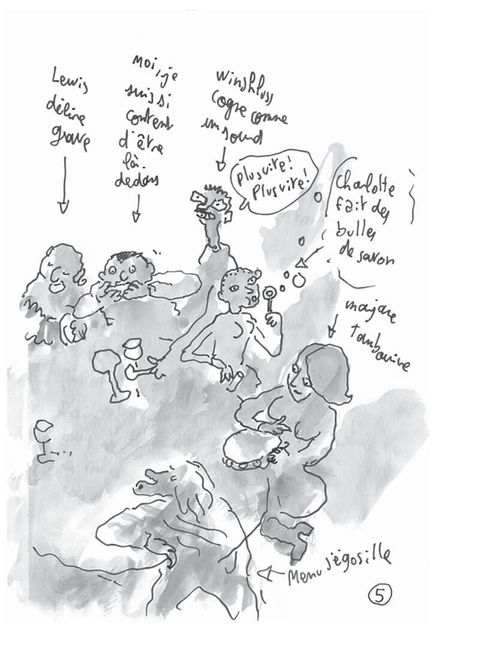 Lewis
délire
grave
moi, je
suis si
content
d'être
là-
dedans
Winshluss
cogne comme
un sourd
plus vite!
plus vite!
Charlotte
fait des
bulles
de savon
marjane
tambourine
Menu s'égosille
5